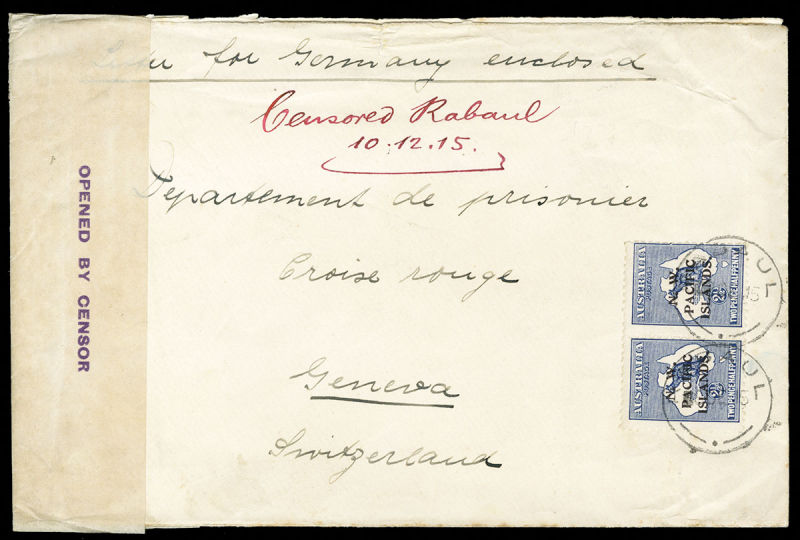 Letter for Germany enclosed
Censored Rabaul
10.12.15.
Departement de prisonier
Croise rouge
Geneva
Switzerland
OPENED BY CENSOR
AUSTRALIA
POSTAGE
N.W.
PACIFIC
ISLANDS.
2½D
TWO PENCE HALFPENNY
AUSTRALIA
POSTAGE
N.W.
PACIFIC
ISLANDS.
2½D
TWO PENCE HALFPENNY
AUL
15
AUL